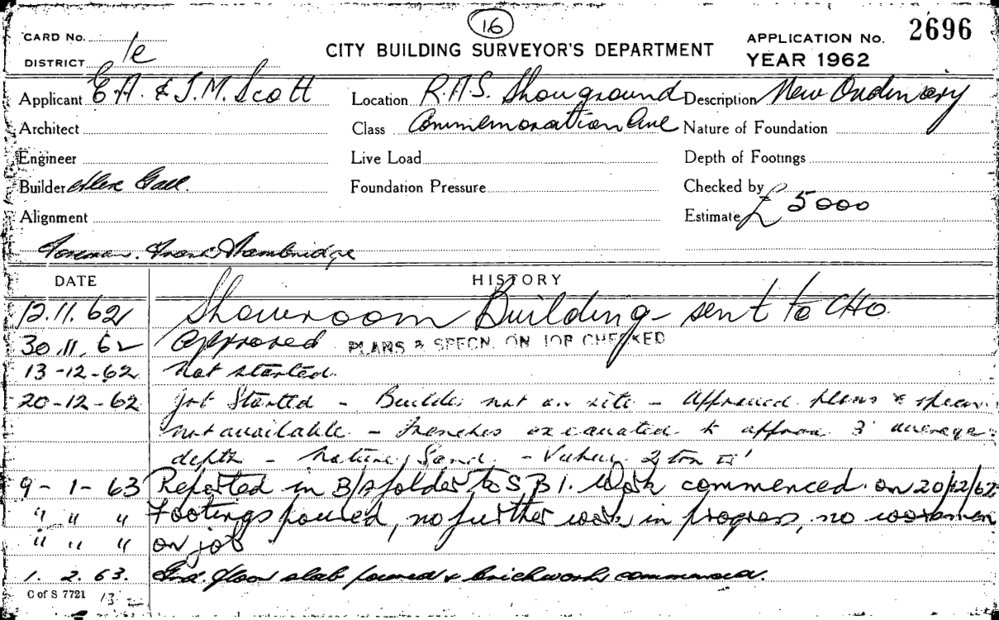 16
CARD No.
CITY BUILDING SURVEYOR'S DEPARTMENT
APPLICATION No. 2696
DISTRICT 1e
YEAR 1962
Applicant E.A. & J.M. Scott Location R.A.S. Showground Description New Ordinary
Architect Class Commemoration Ave Nature of Foundation
Engineer Live Load Depth of Footings
Builder Alex Gall. Foundation Pressure Checked by
Alignment Estimate £5000
Foreman. Frank Stambridge
DATE HISTORY
12.11.62 Showroom Building - sent to CHO
30.11.62 Approved PLANS & SPECN. ON JOB CHECKED
13-12-62 Not started.
20-12-62 Job Started - Builder not on site - Approved plans & specn
not available - Trenches excavated to approx 3' average
depth - Nature, Sand. - Value 2 ton
9-1-63 Reported in B/s folder to SBI. Work commenced on 20/12/62
" " " Footings poured, no further work in progress, no workmen
" " " on job
1.2.63. Grd. floor slab poured & brickwork commenced.
C of S 7721 13-2